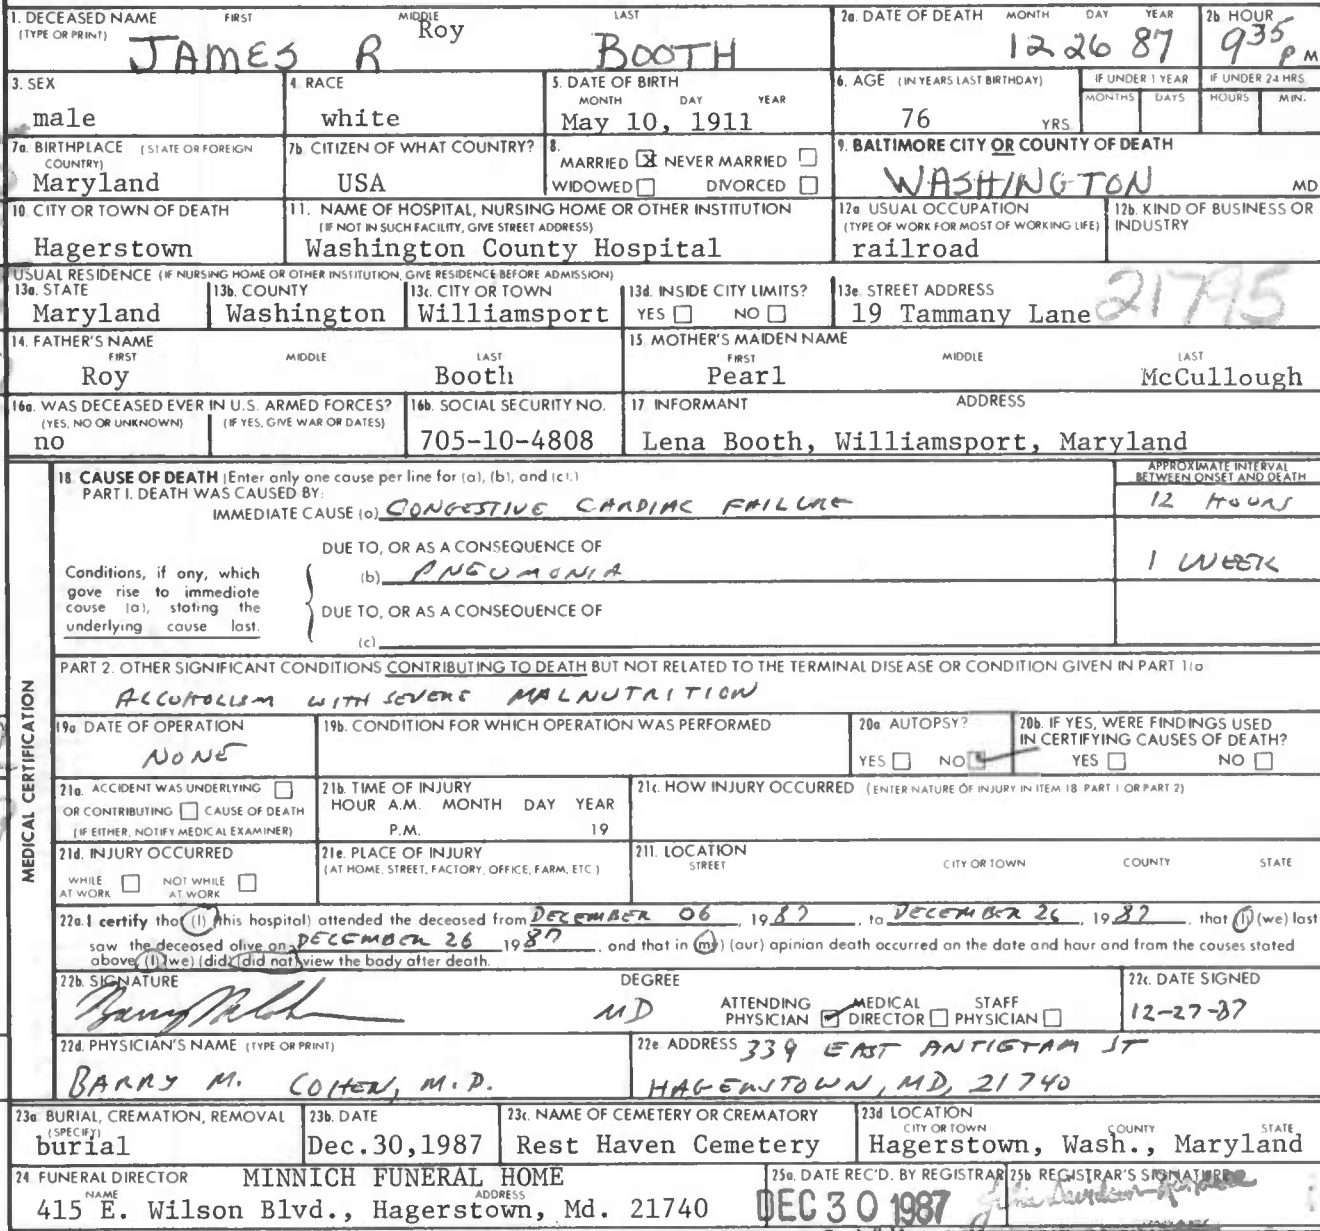 1. DECEASED NAME FIRST MIDDLE LAST
(TYPE OR PRINT) Roy
JAMES R BOOTH
2a. DATE OF DEATH MONTH DAY YEAR
12 26 87
2b. HOUR
9 35 P M
3. SEX
male
4. RACE
white
5. DATE OF BIRTH
MONTH DAY YEAR
May 10, 1911
6. AGE (IN YEARS LAST BIRTHDAY)
76 YRS
IF UNDER 1 YEAR
MONTHS DAYS
IF UNDER 24 HRS
HOURS MIN.
7a. BIRTHPLACE (STATE OR FOREIGN
COUNTRY)
Maryland
7b. CITIZEN OF WHAT COUNTRY?
USA
8.
MARRIED X NEVER MARRIED
WIDOWED DIVORCED
9. BALTIMORE CITY OR COUNTY OF DEATH
WASHINGTON MD
10. CITY OR TOWN OF DEATH
Hagerstown
11. NAME OF HOSPITAL, NURSING HOME OR OTHER INSTITUTION
(IF NOT IN SUCH FACILITY, GIVE STREET ADDRESS)
Washington County Hospital
12a USUAL OCCUPATION
(TYPE OF WORK FOR MOST OF WORKING LIFE)
railroad
12b. KIND OF BUSINESS OR
INDUSTRY
USUAL RESIDENCE (IF NURSING HOME OR OTHER INSTITUTION, GIVE RESIDENCE BEFORE ADMISSION)
13a. STATE
Maryland
13b. COUNTY
Washington
13c. CITY OR TOWN
Williamsport
13d. INSIDE CITY LIMITS?
YES NO
13e STREET ADDRESS
19 Tammany Lane 21795
14. FATHER'S NAME
FIRST MIDDLE LAST
Roy Booth
15. MOTHER'S MAIDEN NAME
FIRST MIDDLE LAST
Pearl McCullough
16a. WAS DECEASED EVER IN U.S. ARMED FORCES?
(YES, NO OR UNKNOWN) (IF YES, GIVE WAR OR DATES)
no
16b. SOCIAL SECURITY NO.
705-10-4808
17 INFORMANT ADDRESS
Lena Booth, Williamsport, Maryland
MEDICAL CERTIFICATION
18. CAUSE OF DEATH (Enter only one cause per line for (a), (b), and (c).)
PART I. DEATH WAS CAUSED BY:
IMMEDIATE CAUSE (a) CONGESTIVE CARDIAC FAILURE
APPROXIMATE INTERVAL
BETWEEN ONSET AND DEATH
12 HOURS
DUE TO, OR AS A CONSEQUENCE OF
(b) PNEUMONIA
1 WEEK
Conditions, if any, which
gove rise to immediate
couse (a), stating the
underlying cause last.
DUE TO, OR AS A CONSEQUENCE OF
(c)
PART 2. OTHER SIGNIFICANT CONDITIONS CONTRIBUTING TO DEATH BUT NOT RELATED TO THE TERMINAL DISEASE OR CONDITION GIVEN IN PART 1(a
ALCOHOLISM WITH SEVERE MALNUTRITION
19a DATE OF OPERATION
NONE
19b. CONDITION FOR WHICH OPERATION WAS PERFORMED
20a AUTOPSY?
YES NO ✓
20b. IF YES, WERE FINDINGS USED
IN CERTIFYING CAUSES OF DEATH?
YES NO
21a. ACCIDENT WAS UNDERLYING
OR CONTRIBUTING CAUSE OF DEATH
(IF EITHER, NOTIFY MEDICAL EXAMINER)
21b. TIME OF INJURY
HOUR A.M. MONTH DAY YEAR
P.M. 19
21c. HOW INJURY OCCURRED (ENTER NATURE OF INJURY IN ITEM 18 PART 1 OR PART 2)
21d. INJURY OCCURRED
WHILE AT WORK NOT WHILE AT WORK
21e. PLACE OF INJURY
(AT HOME, STREET, FACTORY, OFFICE, FARM, ETC)
21f. LOCATION
STREET CITY OR TOWN COUNTY STATE
22a. I certify that (I) (this hospital) attended the deceased from DECEMBER 06, 1987, to DECEMBER 26, 1987, that (I) (we) last
saw the deceased alive on DECEMBER 26 1987, and that in (my) (our) opinion death occurred on the date and hour and from the causes stated
above, (I) (we) (did) (did not) view the body after death.
22b. SIGNATURE
DEGREE
MD
ATTENDING PHYSICIAN ✓ MEDICAL DIRECTOR STAFF PHYSICIAN
22c. DATE SIGNED
12-27-87
22d. PHYSICIAN'S NAME (TYPE OR PRINT)
BARRY M. COHEN, M.D.
22e ADDRESS 339 EAST ANTIETAM ST
HAGERSTOWN, MD, 21740
23a BURIAL, CREMATION, REMOVAL
(SPECIFY)
burial
23b. DATE
Dec.30,1987
23c. NAME OF CEMETERY OR CREMATORY
Rest Haven Cemetery
23d LOCATION
CITY OR TOWN COUNTY STATE
Hagerstown, Wash., Maryland
24 FUNERAL DIRECTOR MINNICH FUNERAL HOME
NAME ADDRESS
415 E. Wilson Blvd., Hagerstown, Md. 21740
25a. DATE REC'D. BY REGISTRAR
DEC 30 1987
25b REGISTRAR'S SIGNATURE